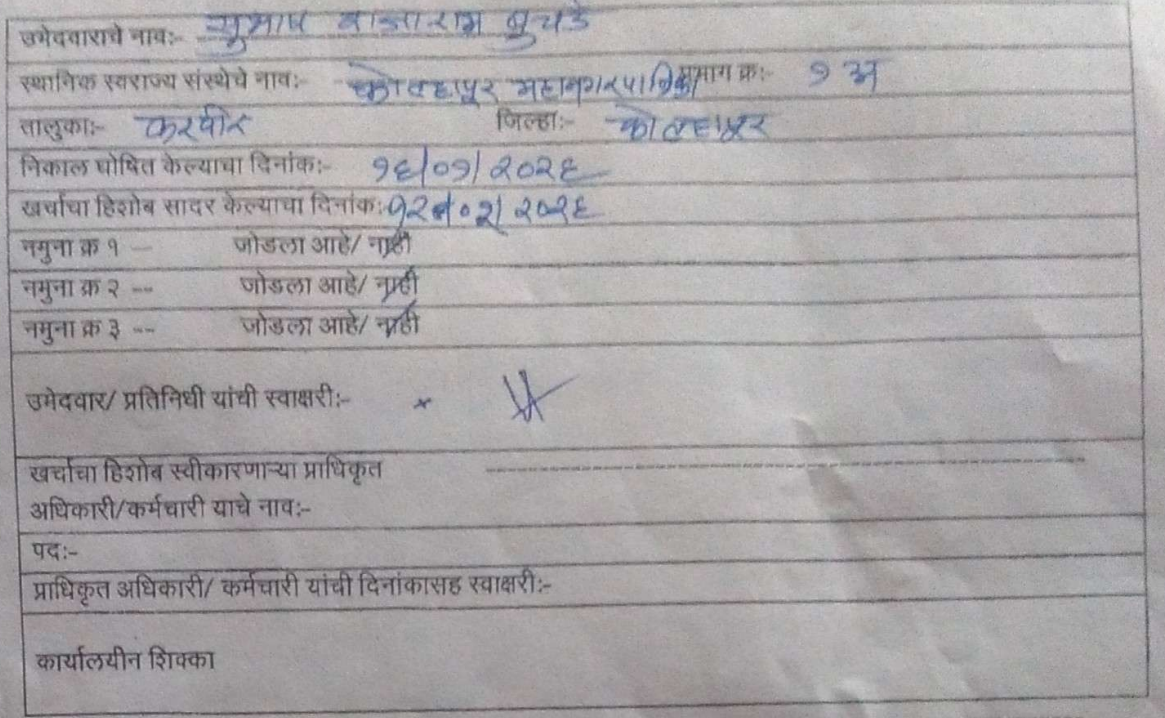 उमेदवाराचे नाव:- सुभाष राजाराम बुचडे
स्थानिक स्वराज्य संस्थेचे नाव:- कोल्हापूर महानगरपालिका प्रभाग क्र:- १ अ
तालुका:- करवीर जिल्हा:- कोल्हापूर
निकाल घोषित केल्याचा दिनांक:- १६/०१/२०२६
खर्चाचा हिशोब सादर केल्याचा दिनांक: १२/०२/२०२६
नमुना क्र १ -- जोडला आहे/ नाही
नमुना क्र २ -- जोडला आहे/ नाही
नमुना क्र ३ -- जोडला आहे/ नाही
उमेदवार/ प्रतिनिधी यांची स्वाक्षरी:- ×
खर्चाचा हिशोब स्वीकारणाऱ्या प्राधिकृत
अधिकारी/कर्मचारी याचे नाव:-
पद:-
प्राधिकृत अधिकारी/ कर्मचारी यांची दिनांकासह स्वाक्षरी:-
कार्यालयीन शिक्का